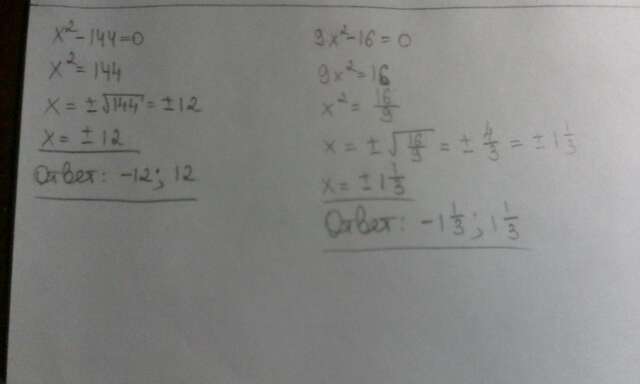 x²-144=0
x²=144
x=±√144=±12
x=±12
Ответ: -12; 12
9x²-16=0
9x²=16
x²=16/9
x=±√16/9=±4/3=±1 1/3
x=±1 1/3
Ответ: -1 1/3; 1 1/3